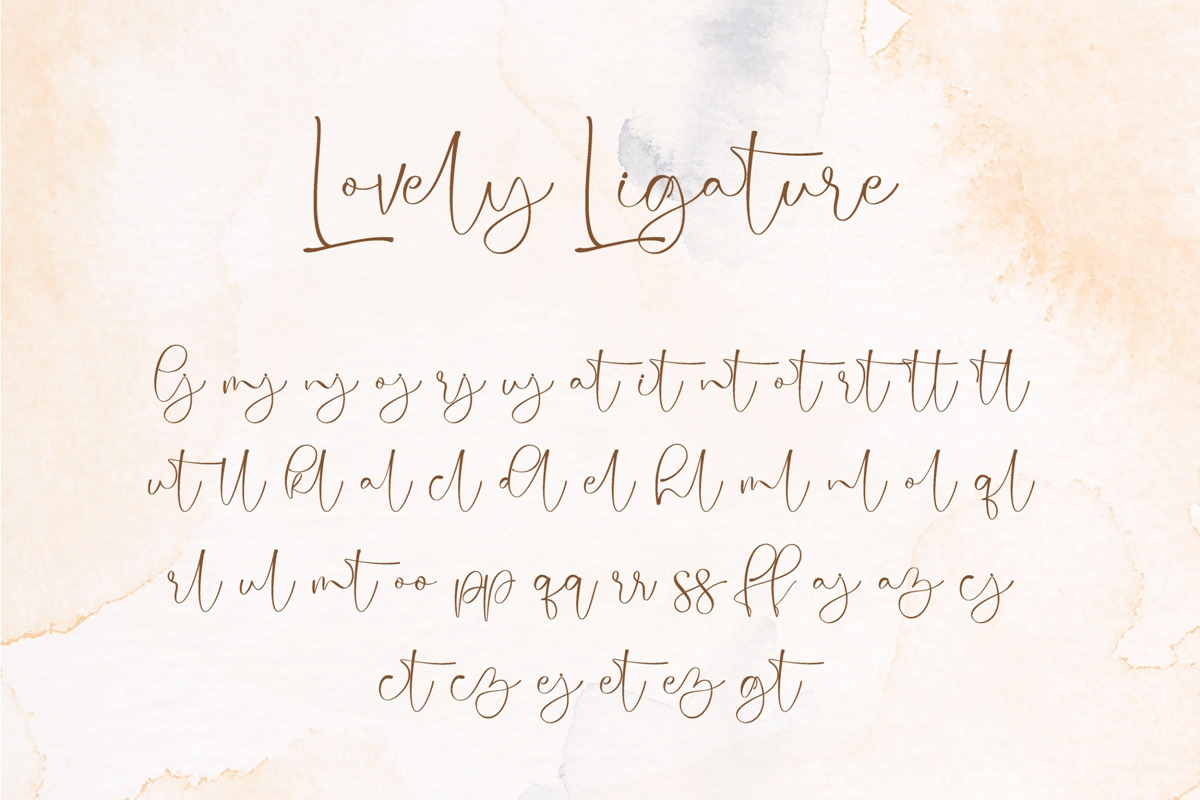 Lovely Ligature
lj mj nj oj rj uj at it nt ot rt tt tl
ut ll kl al cl dl el hl ml nl ol ql
rl ul mt oo pp qq rr ss ff aj az cj
ct cz ej et ez gt